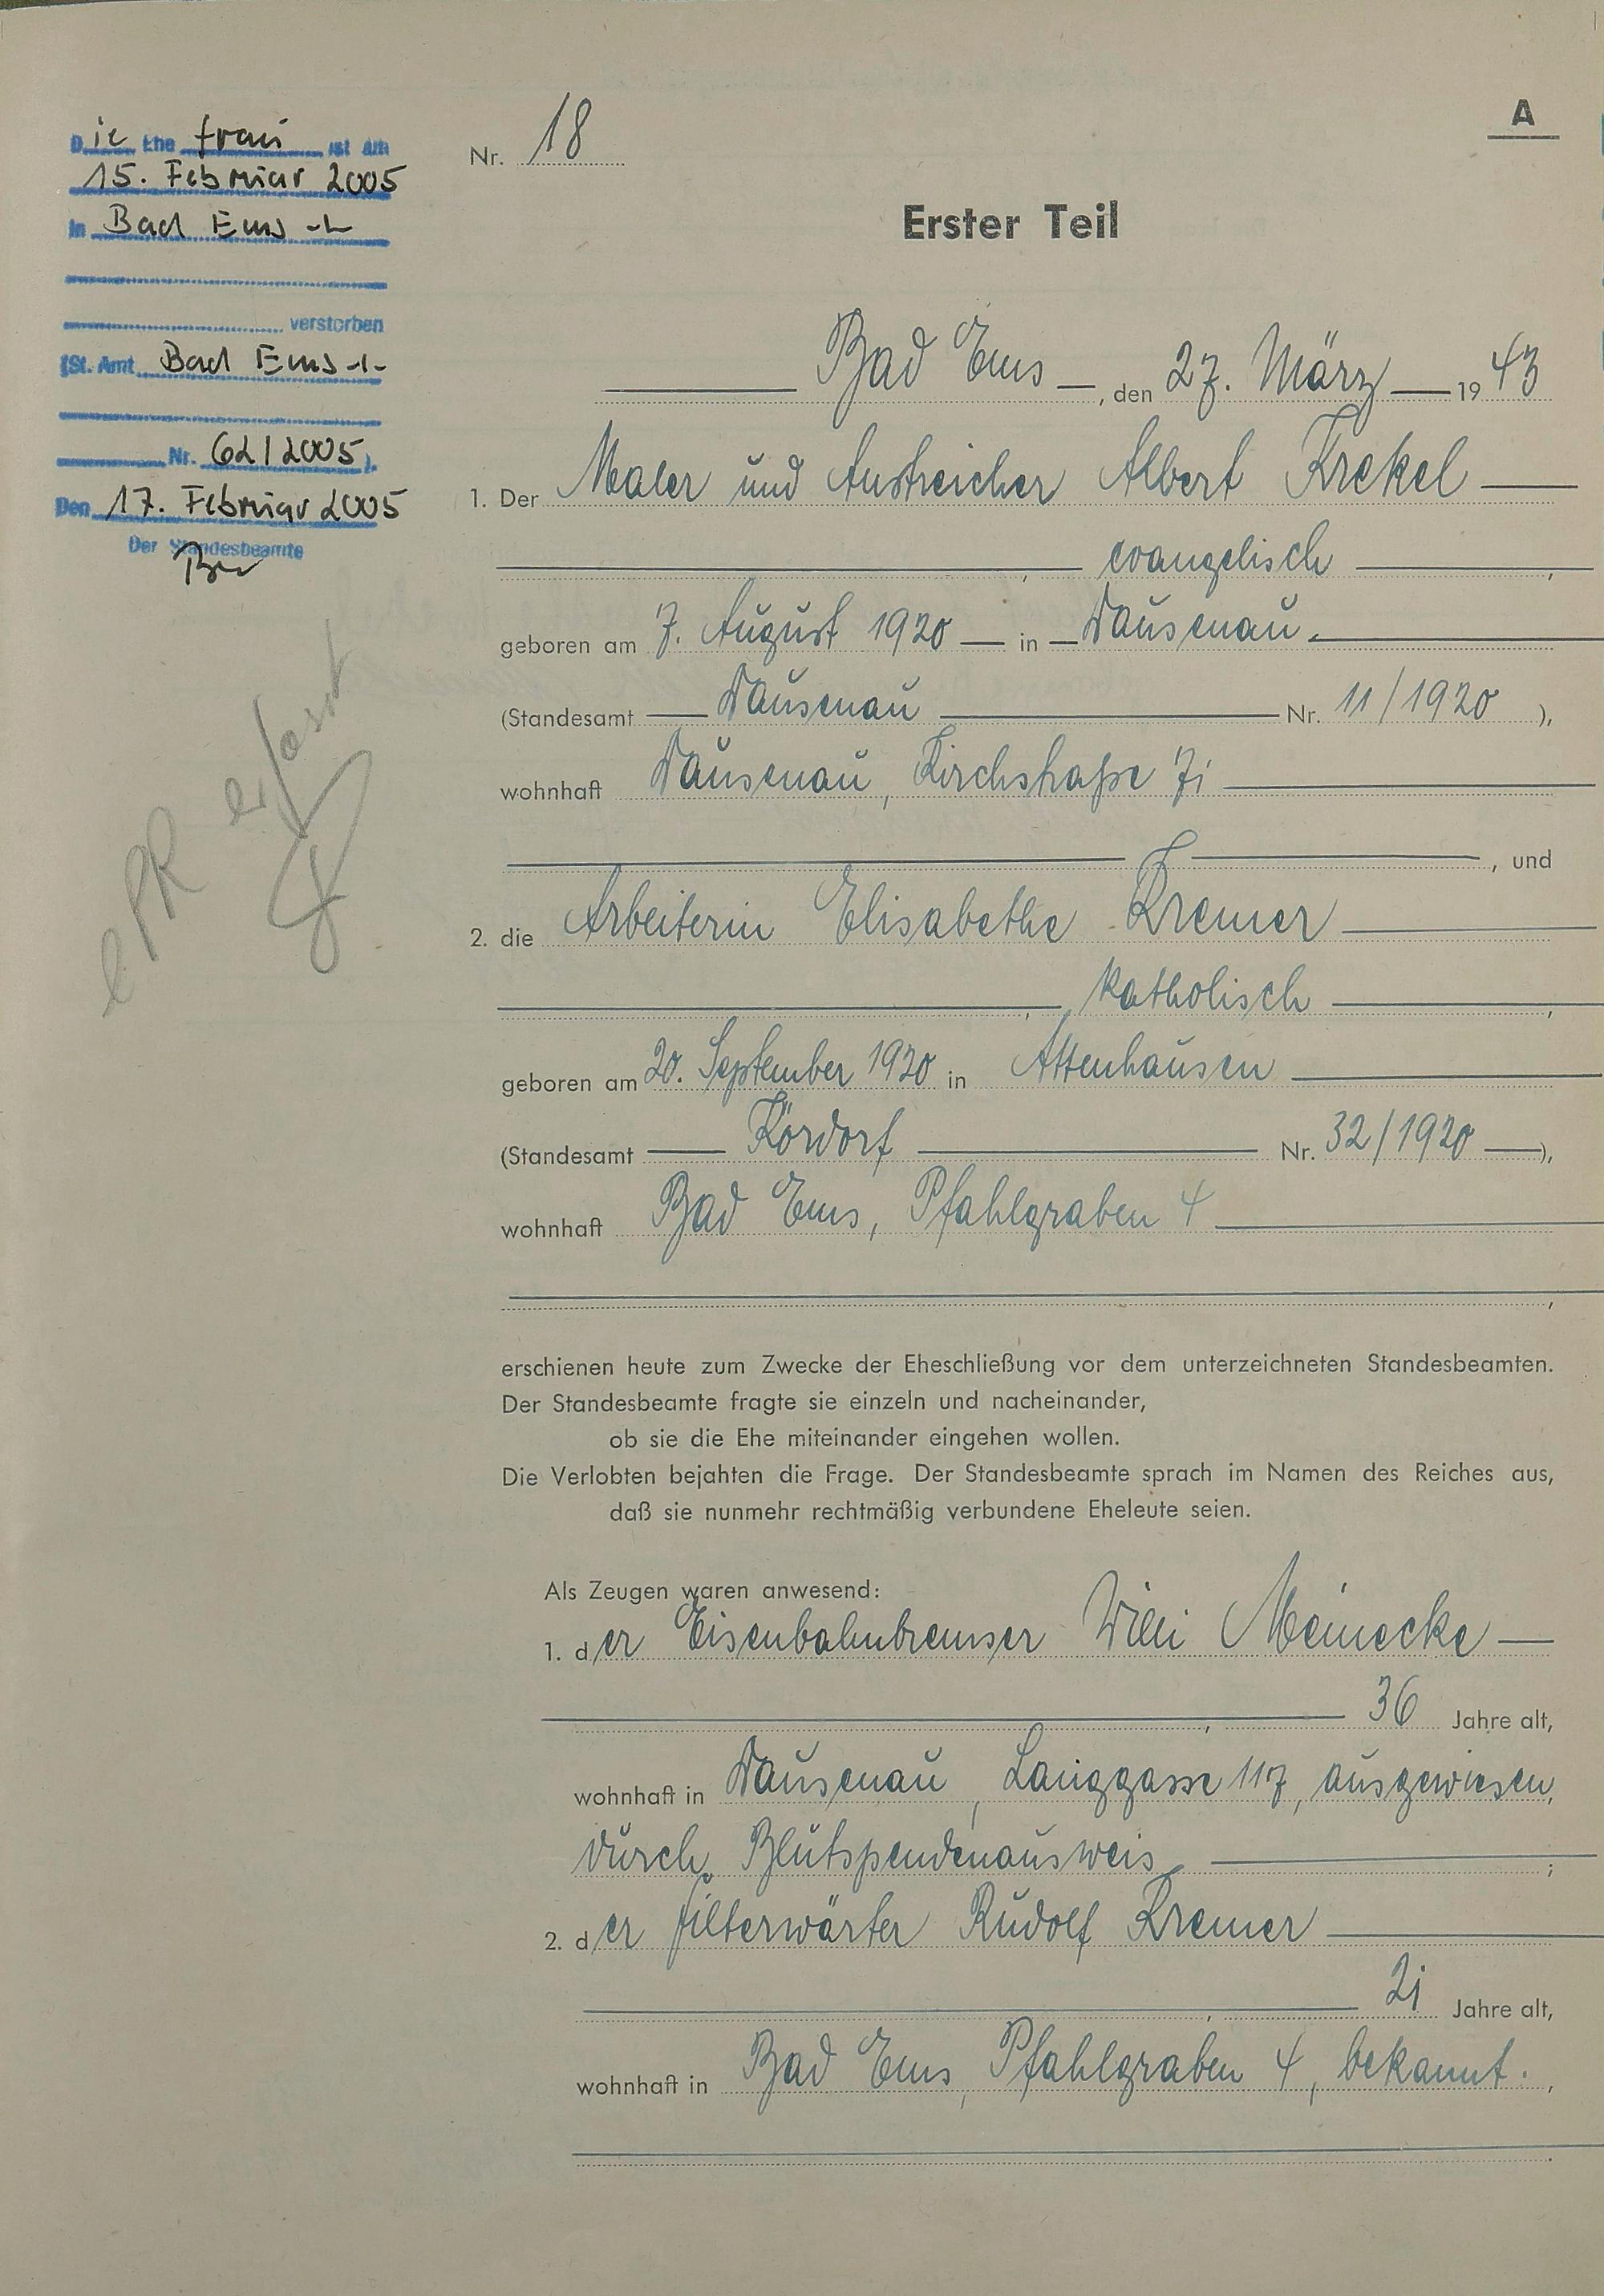 Die Ehe frau ist am
15. Februar 2005
in Bad Ems -/-
verstorben
(St. Amt Bad Ems -/-
Nr. 62/2005).
Den 17. Februar 2005
Der Standesbeamte
ePR erfasst
A
Nr. 18
Erster Teil
Bad Ems —, den 27. März — 19 43
1. Der Maler und Anstreicher Albert Krekel —
—, evangelisch —,
geboren am 7. August 1920 — in — Dausenau. —
(Standesamt — Dausenau — Nr. 11/1920 ),
wohnhaft Dausenau, Kirchstraße 71 —
—, und
2. die Arbeiterin Elisabethe Kremer —
—, katholisch —,
geboren am 20. September 1920 in Attenhausen —
(Standesamt — Kördorf — Nr. 32/1920 —),
wohnhaft Bad Ems, Pfahlgraben 4 —
—,
erschienen heute zum Zwecke der Eheschließung vor dem unterzeichneten Standesbeamten.
Der Standesbeamte fragte sie einzeln und nacheinander,
ob sie die Ehe miteinander eingehen wollen.
Die Verlobten bejahten die Frage. Der Standesbeamte sprach im Namen des Reiches aus,
daß sie nunmehr rechtmäßig verbundene Eheleute seien.
Als Zeugen waren anwesend:
1. der Eisenbahnbremser Willi Meinecke —
—, 36 Jahre alt,
wohnhaft in Dausenau, Langgasse 117, ausgewiesen,
durch Blutspendenausweis —;
2. der Filterwärter Rudolf Kremer —
—, 21 Jahre alt,
wohnhaft in Bad Ems, Pfahlgraben 4, bekannt.,
—.